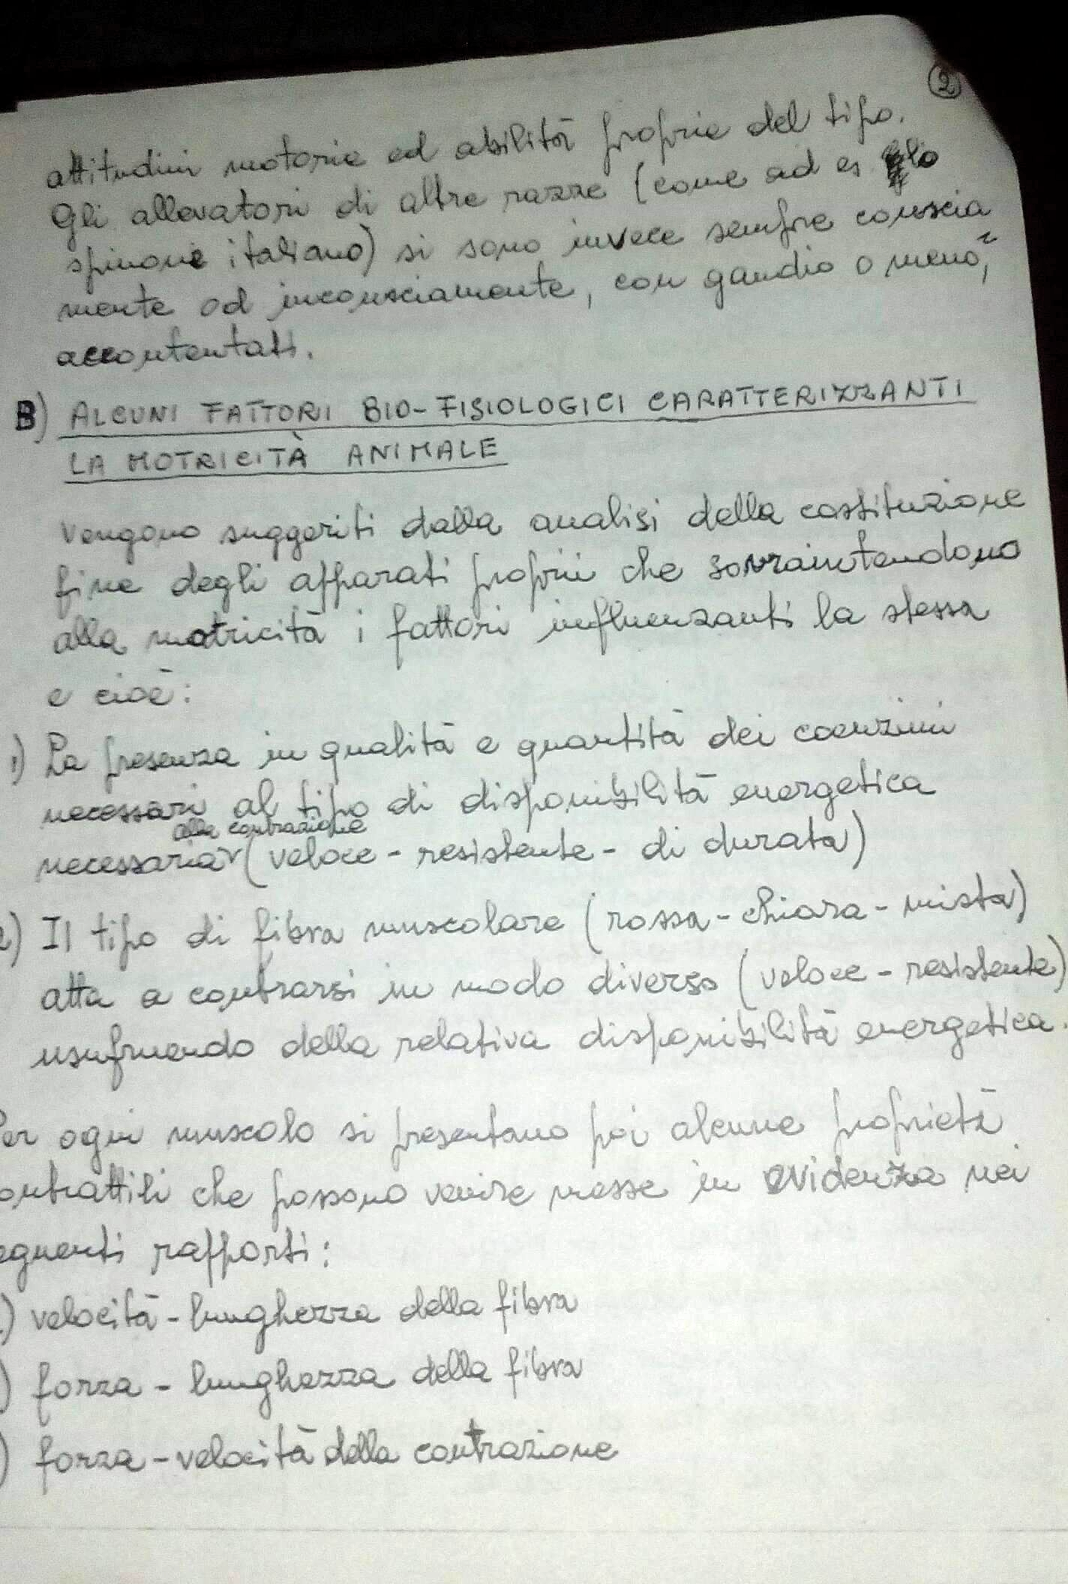 2
attitudini motorie ed abilità proprie del tipo.
Gli allevatori di altre razze (come ad es lo
spinone italiano) si sono invece sempre conscia
mente od inconsciamente, con gaudio o meno,
accontentati.
B) ALCUNI FATTORI BIO-FISIOLOGICI CARATTERIZZANTI
LA MOTRICITÀ ANIMALE
Vengono suggeriti dalla analisi della costituzione
fine degli apparati proprii che sovraintendono
alla motricità i fattori influenzanti la stessa
e cioè:
1) La presenza in qualità e quantità dei coenzimi
necessari al tipo di disponibilità energetica
alla contrazione
necessaria (veloce - resistente - di durata)
2) Il tipo di fibra muscolare (rossa - chiara - mista)
atta a contrarsi in modo diverso (veloce - resistente)
usufruendo della relativa disponibilità energetica.
Per ogni muscolo si presentano poi alcune proprietà
contrattili che possono venire messe in evidenza nei
seguenti rapporti:
) velocità - lunghezza della fibra
) forza - lunghezza della fibra
) forza - velocità della contrazione